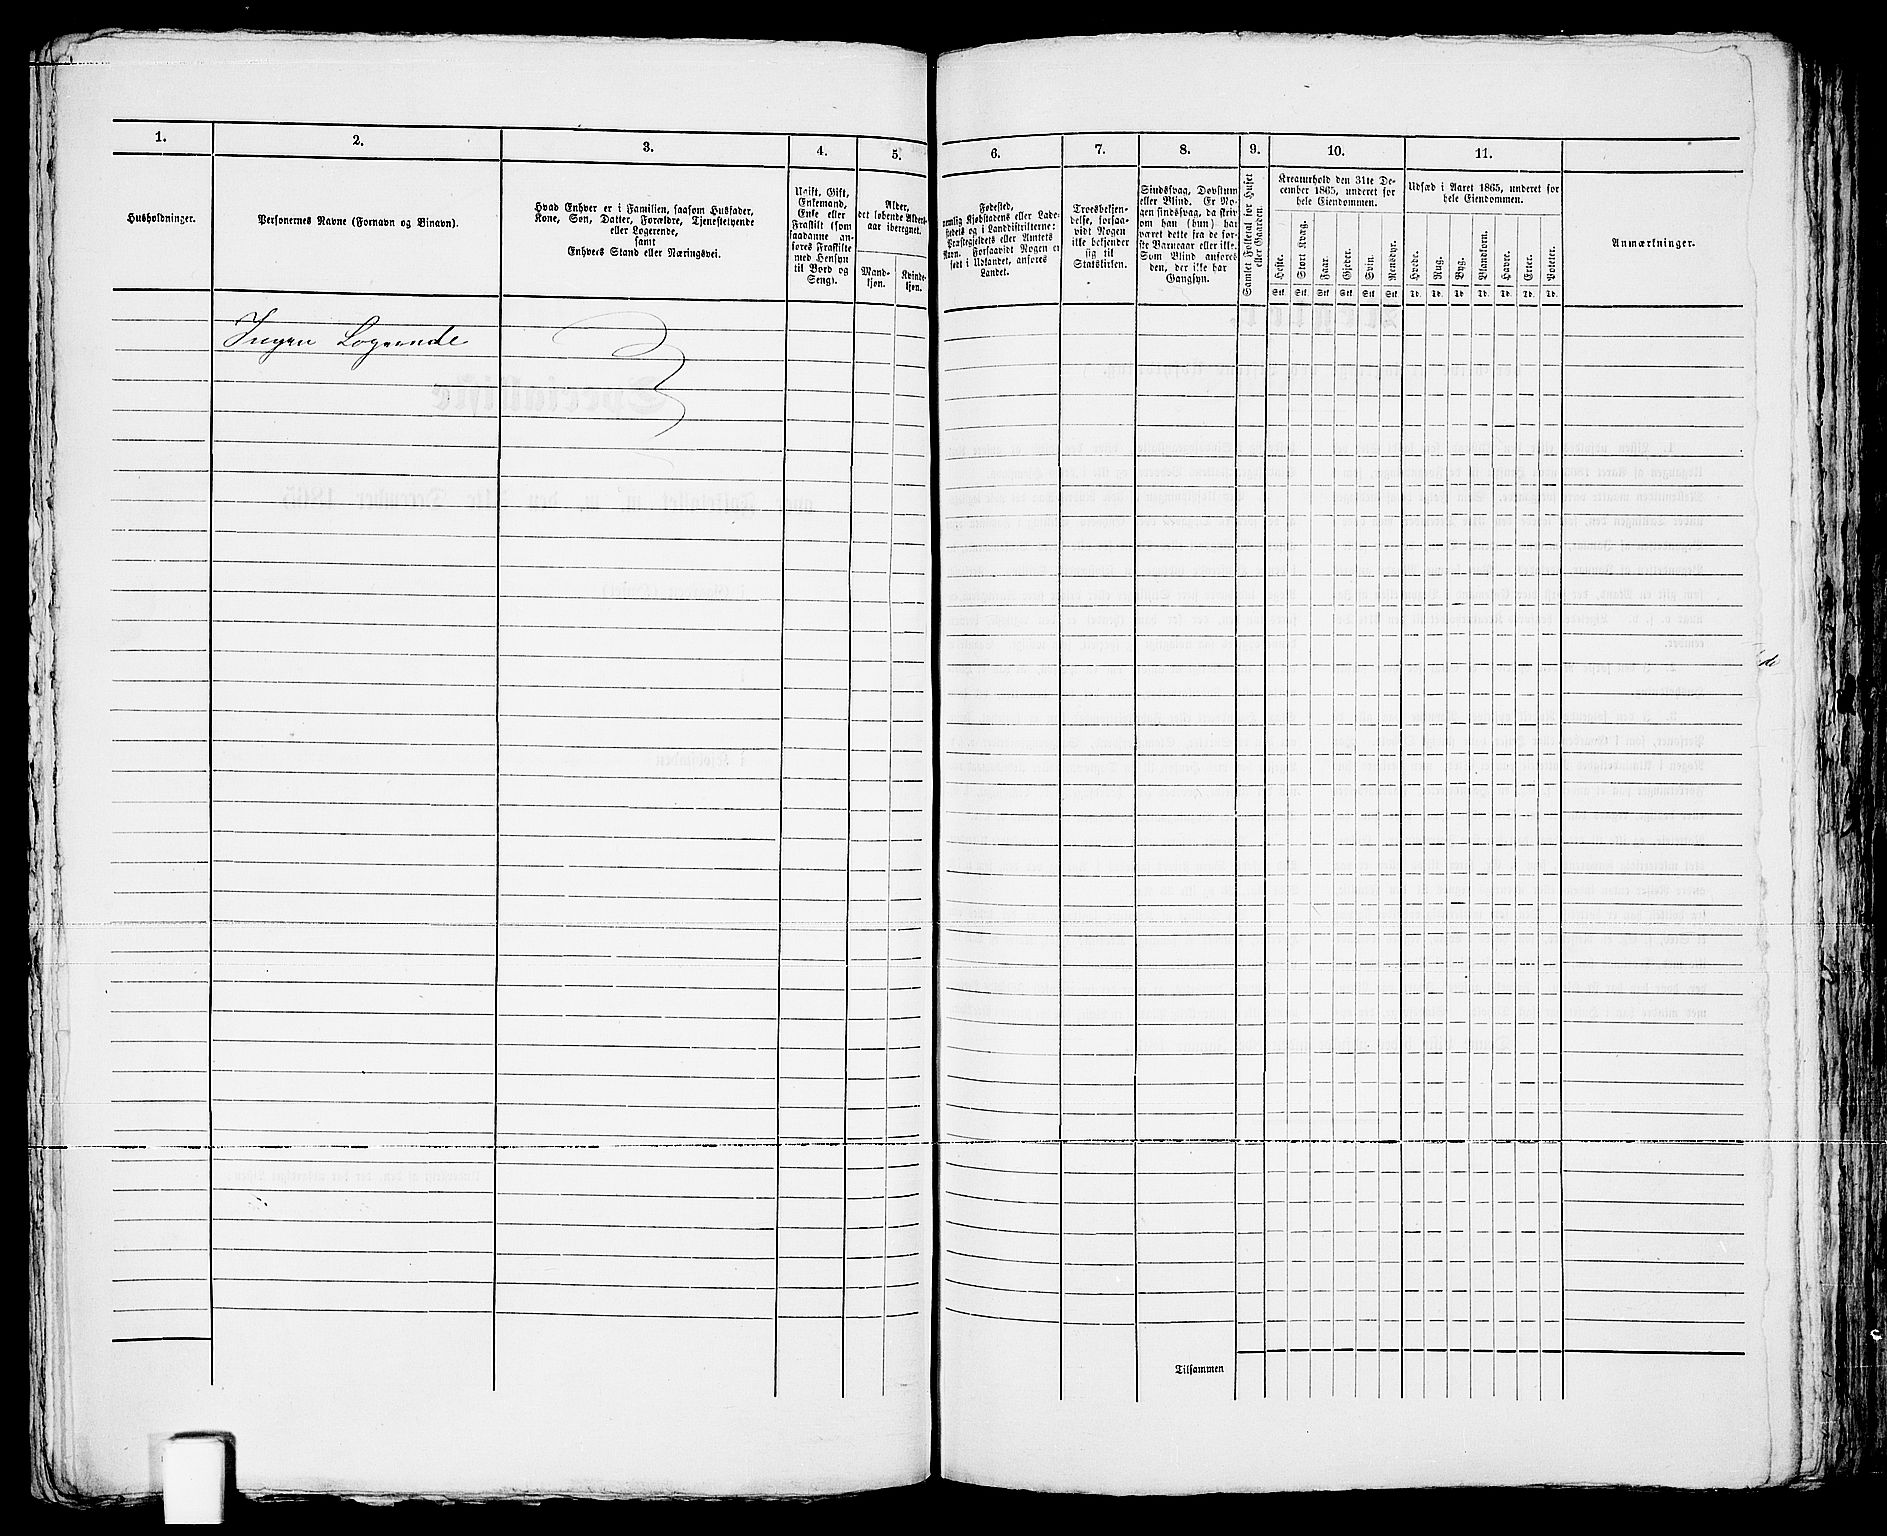 1.
2.
3.
4.
5.
Husholdninger.
Personernes Navne (Fornavn og Binavn).
Hvad Enhver er i Familien, saasom Husfader,
Kone, Søn, Datter, Forældre, Tjenestetyende
eller Logerende,
samt
Enhvers Stand eller Næringsvei.
Ugift, Gift,
Enkemand,
Enke eller
Fraskilt (som
saadanne an-
føres Fraskilte
med Hensyn
til Bord og
Seng).
Alder,
det løbende Alders-
aar iberegnet.
Mand-
kjøn.
Kvinde-
kjøn.
Ingen Logerende
6.
7.
8.
9.
10.
11.
Fødested,
nemlig Kjøbstadens eller Lade-
stedets og i Landdistrikterne:
Præstegjeldets eller Amtets
Navn. Forsaavidt Nogen er
født i Udlandet, anføres
Landet.
Troesbekjen-
delse, forsaa-
vidt Nogen
ikke bekjender
sig til
Statskirken.
Sindssvag, Døvstum
eller Blind. Er No-
gen sindssvag, da skriv
om han (hun) har
været dette fra de før-
ste Barneaar eller ikke.
Som Blind anføres
den, der ikke har
Gangsyn.
Samlet Folketal for Huset
eller Gaarden.
Kreaturhold den 31te De-
cember 1865, underet for
hele Eiendommen.
Heste.
Stort Kvæg.
Faar.
Gjeder.
Svin.
Rensdyr.
Stk Stk Stk Stk Stk Stk
Udsæd i Aaret 1865, underet for
hele Eiendommen.
Hvede.
Rug.
Byg.
Blandkorn.
Havre.
Erter.
Poteter.
Td. Td. Td. Td. Td. Td. Td.
Anmærkninger.
Tilsammen